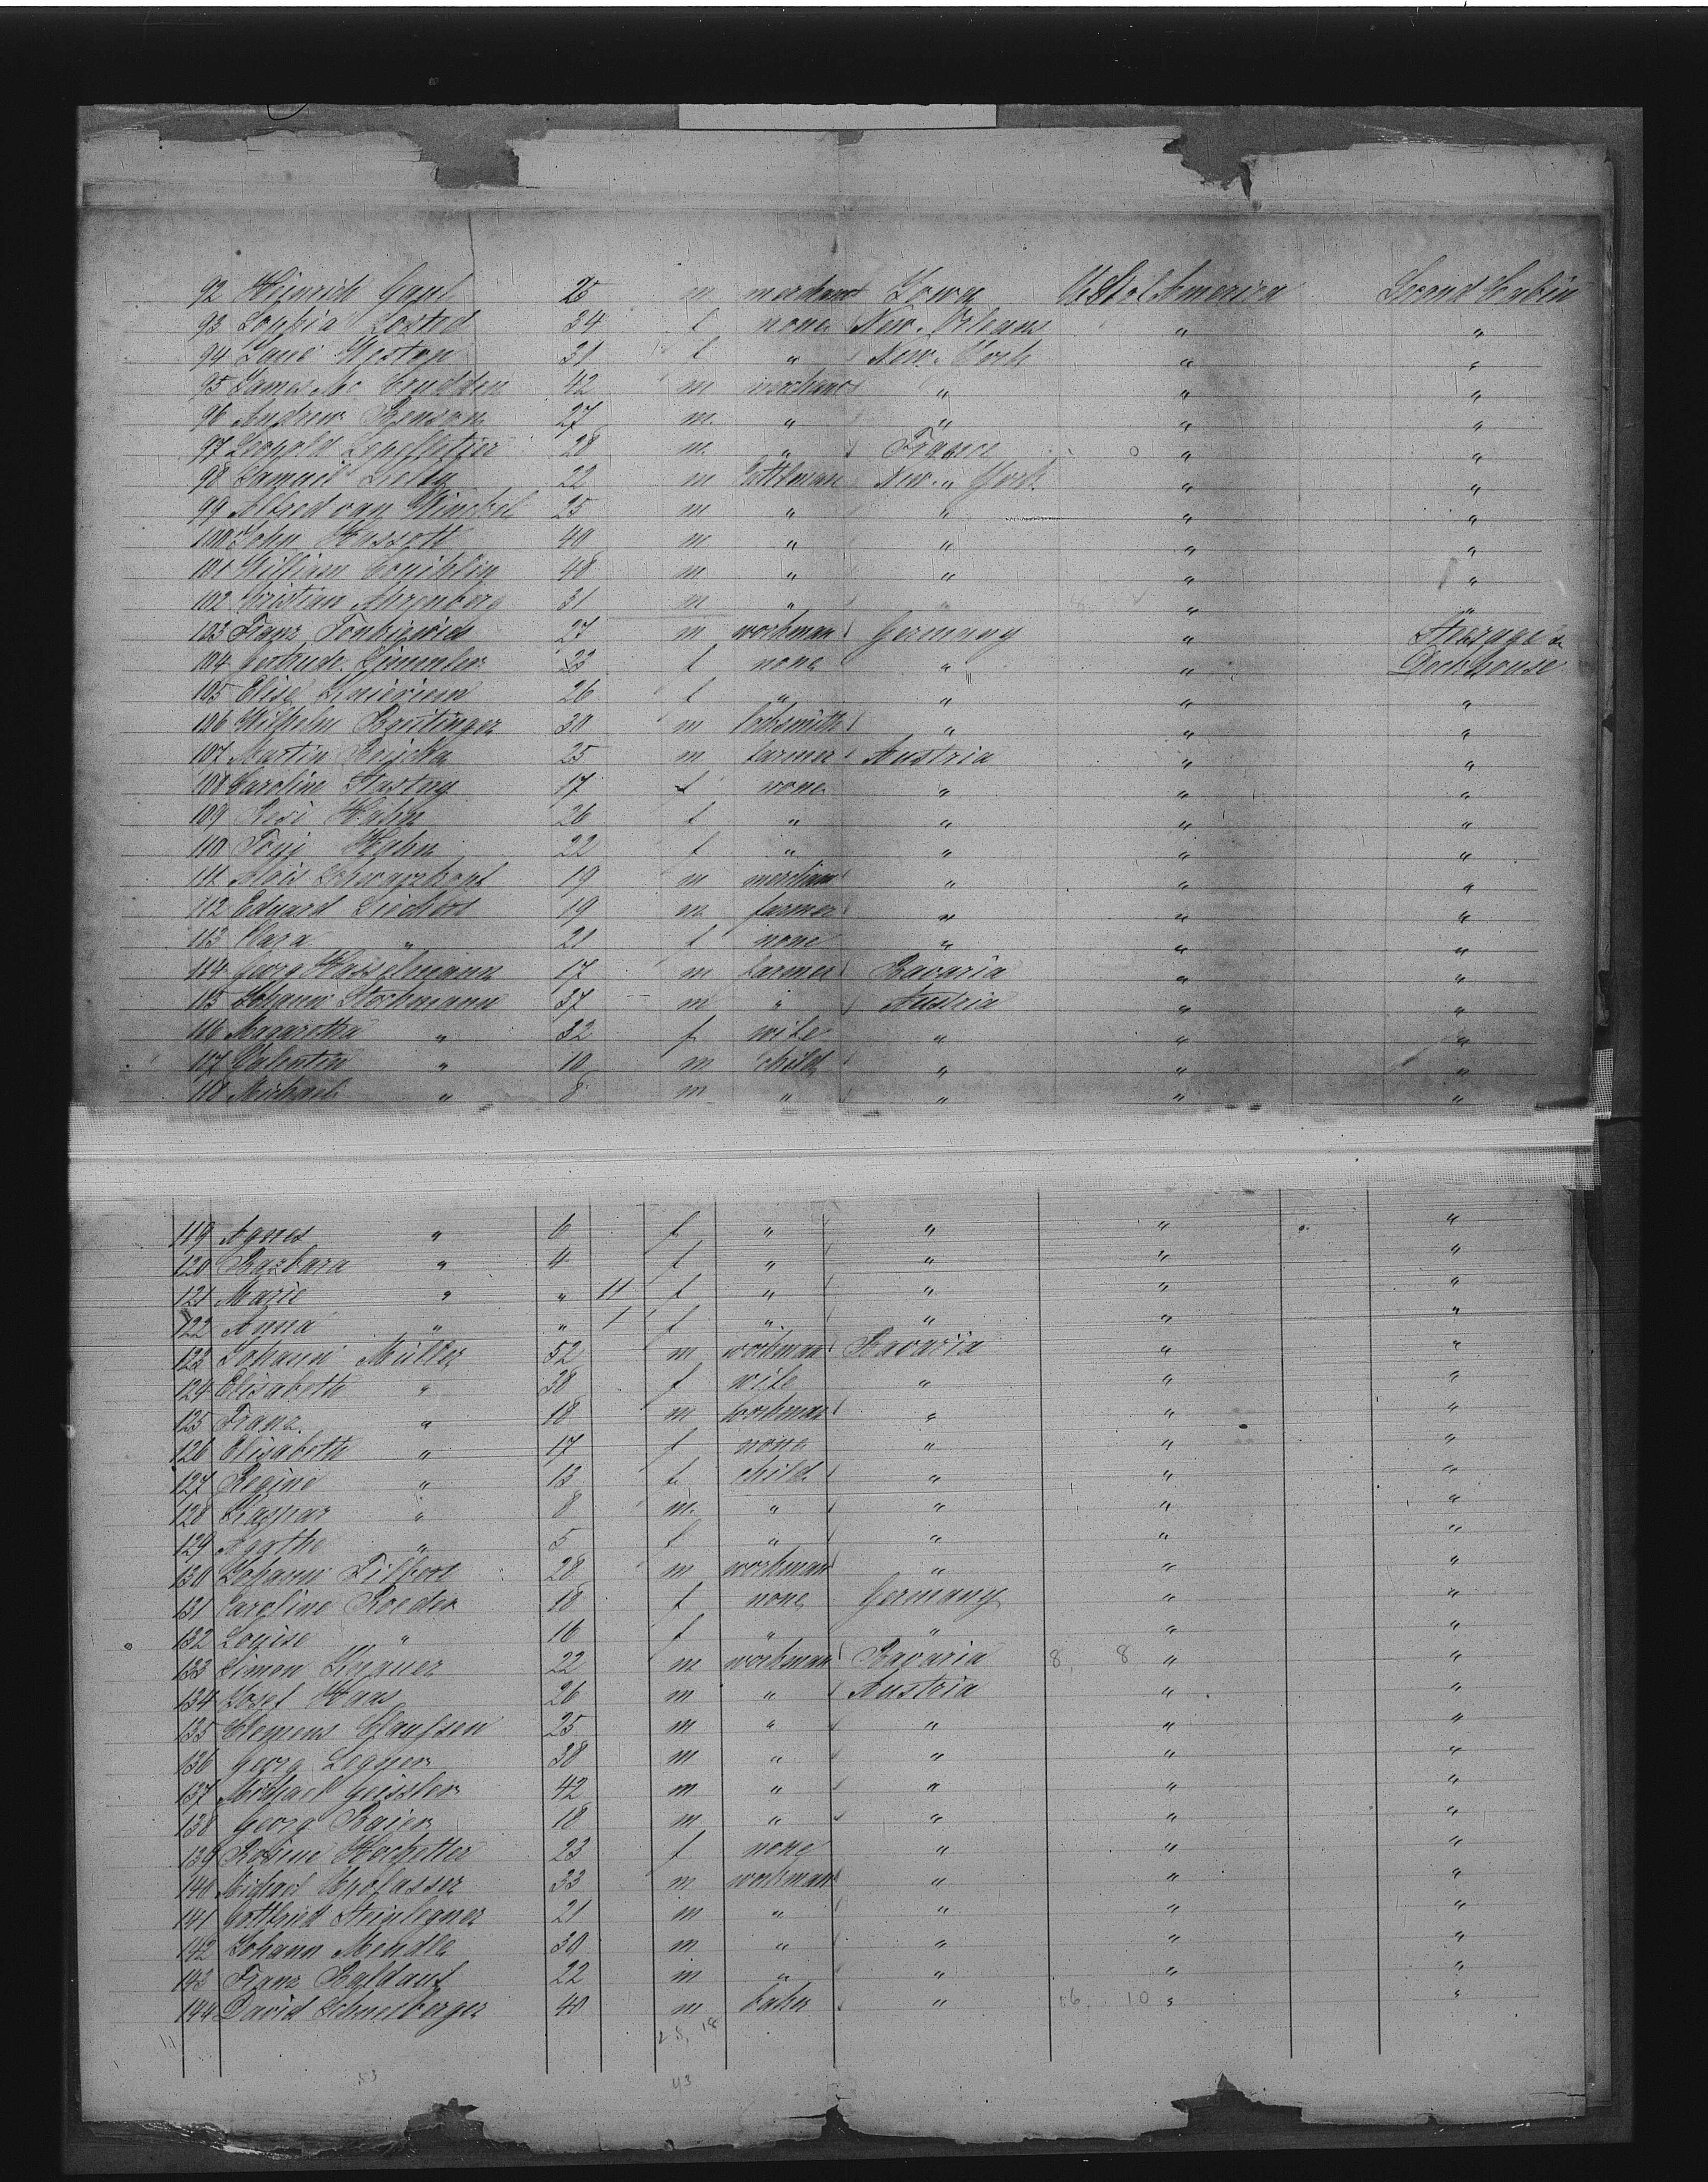 92 Heinrich Gapl 25 m merchant Iowa US of America Second Cabin
93 Sophia 34 f none New. Orleans " "
94 Jane Weston 31 f " New. York " "
95 James Mc Crudden 42 m merchant " " "
96 Andrew Benson 27 m. " " " "
97 Leopold 28 m " France " "
98 Samuel 22 m New. " York " "
99 Alfred van Winckel 25 m " " " "
100 John Hassott 40 m " " " "
101 William 48 m " " " "
102 Kristian Ahrenberg 31 m " " " "
103 Franz 27 m workman Germany " Steerage &
104 Gertrude. Simmler 23 f none " " Deckhouse
105 Elise Knieriem 26 f " " " "
106 Wilhelm Bautinger 30 m locksmith " " "
107 Martin 25 m farmer Austria " "
108 Caroline Stastny 17 f none " " "
109 Resi Hahn 26 f " " " "
110 Hahn 22 f " " " "
111 Alois Schwarzkopf 19 m merchant " " "
112 Eduard 19 m farmer " " "
113 Clara " 21 f none " " "
114 Georg Hasselmann 17 m farmer Bavaria " "
115 Johann Stockmann 37 m " Austria " "
116 Margaretha " 32 f wife " " "
117 Valentin " 10 m child " " "
118 Michael " 8 m " " " "
119 Agnes " 6 f " " " "
120 Barbara " 4 f " " " "
121 Marie " " 11 f " " " "
122 Anna " " 1 f " " " "
123 Johann Müller 52 m workman Bavaria " "
124 Elisabeth " 38 f wife " " "
125 Franz. " 18 m workman " " "
126 Elisabeth " 17 f none " " "
127 Regine " 13 f. child " " "
128 Kaspar " 8 m. " " " "
129 Agathe " 5 f " " " "
130 Johann Filbert 28 m workman " " "
131 Caroline Roeder 18 f none Germany " "
132 Louise " 16 f " " " "
133 Simon 22 m workman Bavaria 8, 8 " "
134 Josef Haas 26 m " Austria " "
135 Clemens Claussen 25 m " " " "
136 Georg Legner 38 m " " " "
137 Michael Geissler 42 m " " " "
138 Georg Baier 18 m " " " "
139 Rosine 23 f none " " "
140 Michael 33 m workman " " "
141 Gottfried Steinlegner 21 m " " " "
142 Johann Mendle 30 m " " " "
143 Franz Baldauf 22 m " " " "
144 David Schneeberger 40 m baker " 10 " "
11 25, 18
53 43